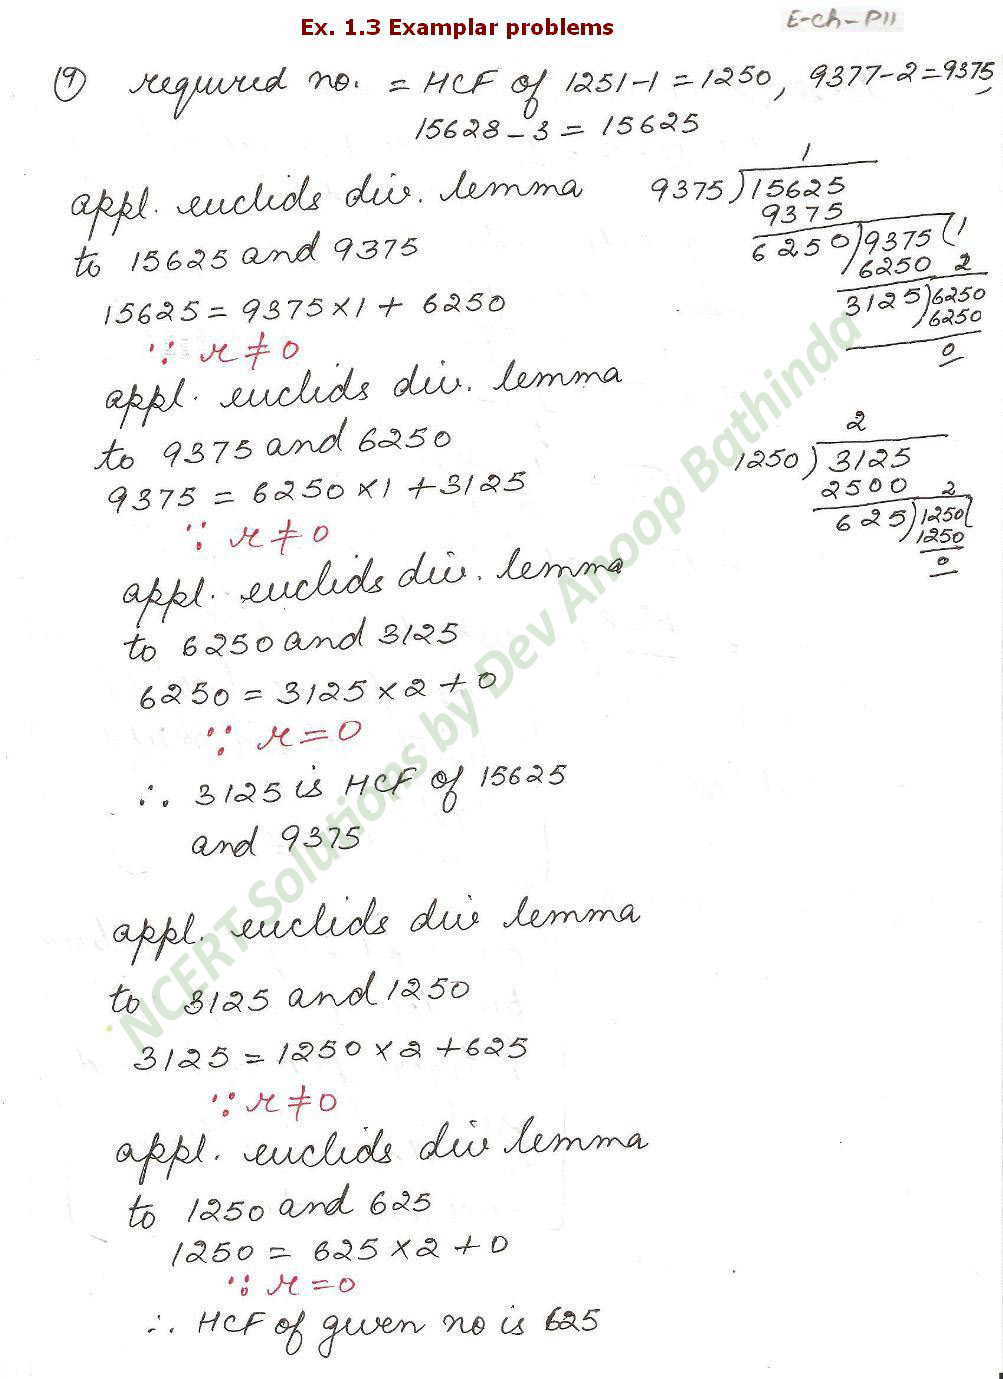 Ex. 1.3 Examplar problems
E-ch-P11
9) required no. = HCF of 1251-1 = 1250, 9377-2 = 9375,
15628 - 3 = 15625
appl. euclids div. lemma
to 15625 and 9375
15625 = 9375 × 1 + 6250
∵ r ≠ 0
appl. euclids div. lemma
to 9375 and 6250
9375 = 6250 × 1 + 3125
∵ r ≠ 0
appl. euclids div. lemma
to 6250 and 3125
6250 = 3125 × 2 + 0
∵ r = 0
∴ 3125 is HCF of 15625
and 9375
appl. euclids div lemma
to 3125 and 1250
3125 = 1250 × 2 + 625
∵ r ≠ 0
appl. euclids div lemma
to 1250 and 625
1250 = 625 × 2 + 0
∵ r = 0
∴ HCF of given no is 625
1
9375 ) 15625
9375
6250 ) 9375 ( 1
6250 2
3125 ) 6250
6250
0
2
1250 ) 3125
2500 2
625 ) 1250 (
1250
0
NCERT Solutions by Dev Anoop Bathinda